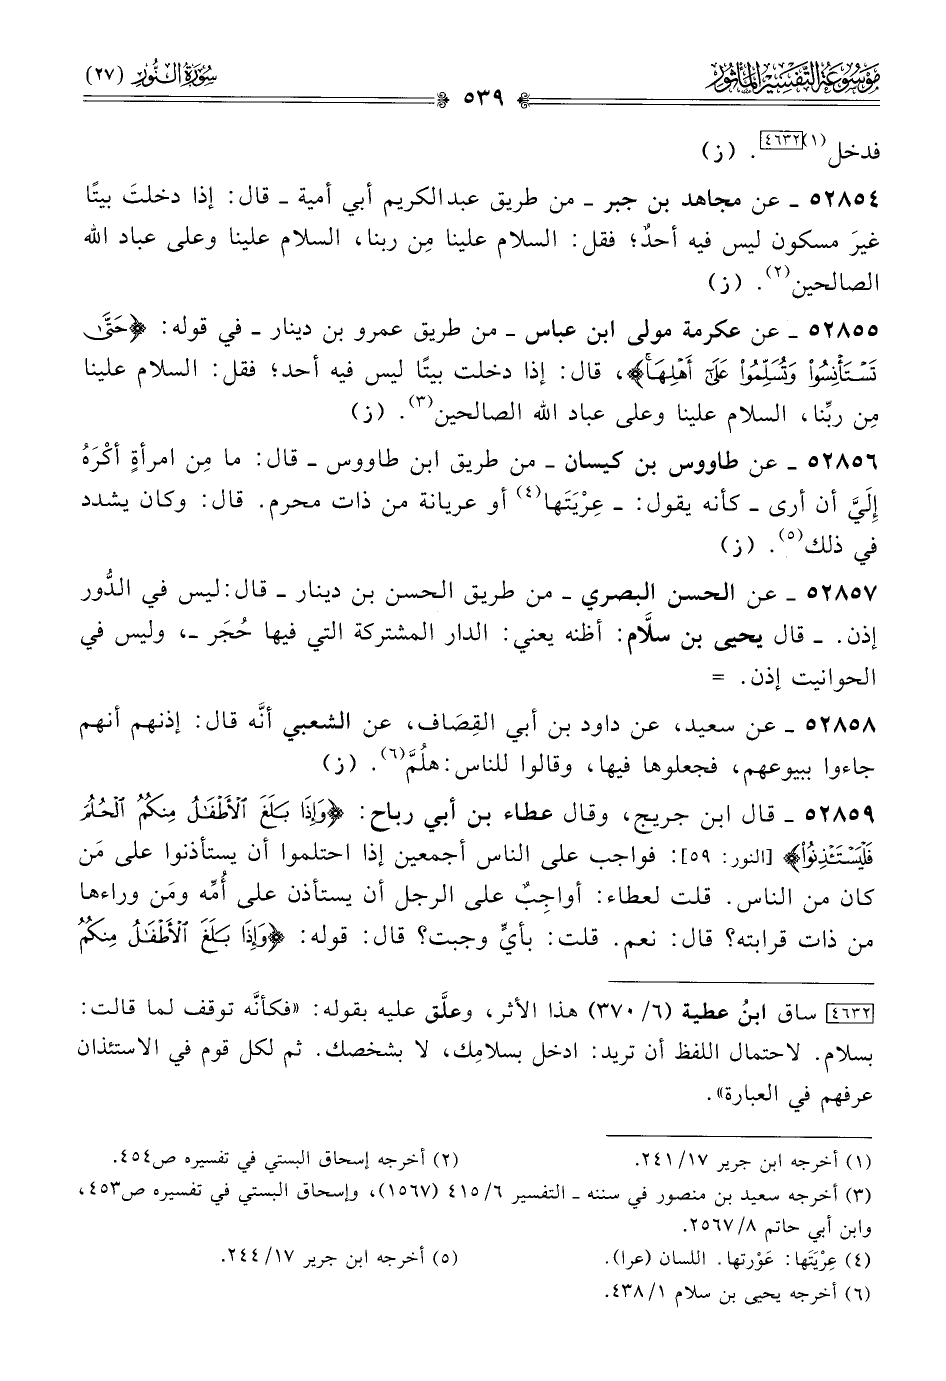 مَوْسُوعَة التَّفْسِيرِ المَأْثُور
سُورَةُ النُّور (٢٧)
٥٣٩
فدخل(١)[٤٦٣٢]. (ز)
٥٢٨٥٤ ـ عن مجاهد بن جبر ـ من طريق عبدالكريم أبي أمية ـ قال: إذا دخلتَ بيتًا
غيرَ مسكون ليس فيه أحدٌ؛ فقل: السلام علينا مِن ربنا، السلام علينا وعلى عباد الله
الصالحين(٢). (ز)
٥٢٨٥٥ ـ عن عكرمة مولى ابن عباس ـ من طريق عمرو بن دينار ـ في قوله: ﴿حَتَّىٰ
تَسْتَأْنِسُوا۟ وَتُسَلِّمُوا۟ عَلَىٰٓ أَهْلِهَاۚ﴾، قال: إذا دخلت بيتًا ليس فيه أحد؛ فقل: السلام علينا
مِن ربِّنا، السلام علينا وعلى عباد الله الصالحين(٣). (ز)
٥٢٨٥٦ ـ عن طاووس بن كيسان ـ من طريق ابن طاووس ـ قال: ما مِن امرأةٍ أكْرَهُ
إلَيَّ أن أرى ـ كأنه يقول: ـ عِرْيَتَها(٤) أو عريانة من ذات محرم. قال: وكان يشدد
في ذلك(٥). (ز)
٥٢٨٥٧ ـ عن الحسن البصري ـ من طريق الحسن بن دينار ـ قال: ليس في الدُّور
إذن. ـ قال يحيى بن سلَّام: أظنه يعني: الدار المشتركة التي فيها حُجَر ـ، وليس في
الحوانيت إذن. =
٥٢٨٥٨ ـ عن سعيد، عن داود بن أبي القِصَاف، عن الشعبي أنَّه قال: إذنهم أنهم
جاءوا ببيوعهم، فجعلوها فيها، وقالوا للناس: هلُمَّ(٦). (ز)
٥٢٨٥٩ ـ قال ابن جريج، وقال عطاء بن أبي رباح: ﴿وَإِذَا بَلَغَ ٱلْأَطْفَٰلُ مِنكُمُ ٱلْحُلُمَ
فَلْيَسْتَـْٔذِنُوا۟﴾ [النور: ٥٩]: فواجب على الناس أجمعين إذا احتلموا أن يستأذنوا على مَن
كان من الناس. قلت لعطاء: أواجِبٌ على الرجل أن يستأذن على أُمِّه ومَن وراءها
من ذات قرابته؟ قال: نعم. قلت: بأيٍّ وجبت؟ قال: قوله: ﴿وَإِذَا بَلَغَ ٱلْأَطْفَٰلُ مِنكُمُ
[٤٦٣٢] ساق ابنُ عطية (٦/ ٣٧٠) هذا الأثر، وعلَّق عليه بقوله: «فكأنَّه توقف لما قالت:
بسلام. لاحتمال اللفظ أن تريد: ادخل بسلامِك، لا بشخصك. ثم لكل قوم في الاستئذان
عرفهم في العبارة».
(١) أخرجه ابن جرير ١٧/ ٢٤١.
(٢) أخرجه إسحاق البستي في تفسيره ص٤٥٤.
(٣) أخرجه سعيد بن منصور في سننه ـ التفسير ٦/ ٤١٥ (١٥٦٧)، وإسحاق البستي في تفسيره ص٤٥٣،
وابن أبي حاتم ٨/ ٢٥٦٧.
(٤) عِرْيَتَها: عَوْرتها. اللسان (عرا).
(٥) أخرجه ابن جرير ١٧/ ٢٤٤.
(٦) أخرجه يحيى بن سلام ١/ ٤٣٨.